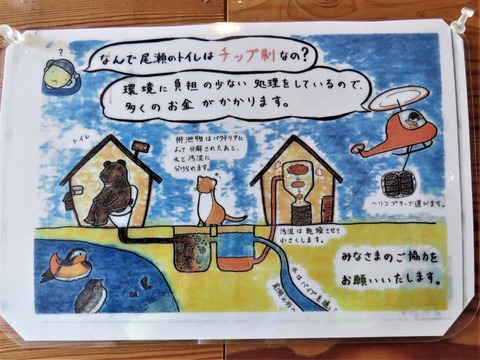 ?
なんで尾瀬のトイレはチップ制なの?
環境に負担の少ない処理をしているので、
多くのお金がかかります。
トイレ
排泄物はバクテリアに
よって分解されたあと、
水と汚泥に
分けられます。
ヘリコプターで運びます。
汚泥は乾燥させて
小さくします。
水はパイプを通って
尾瀬の外へ
みなさまのご協力を
お願いいたします。